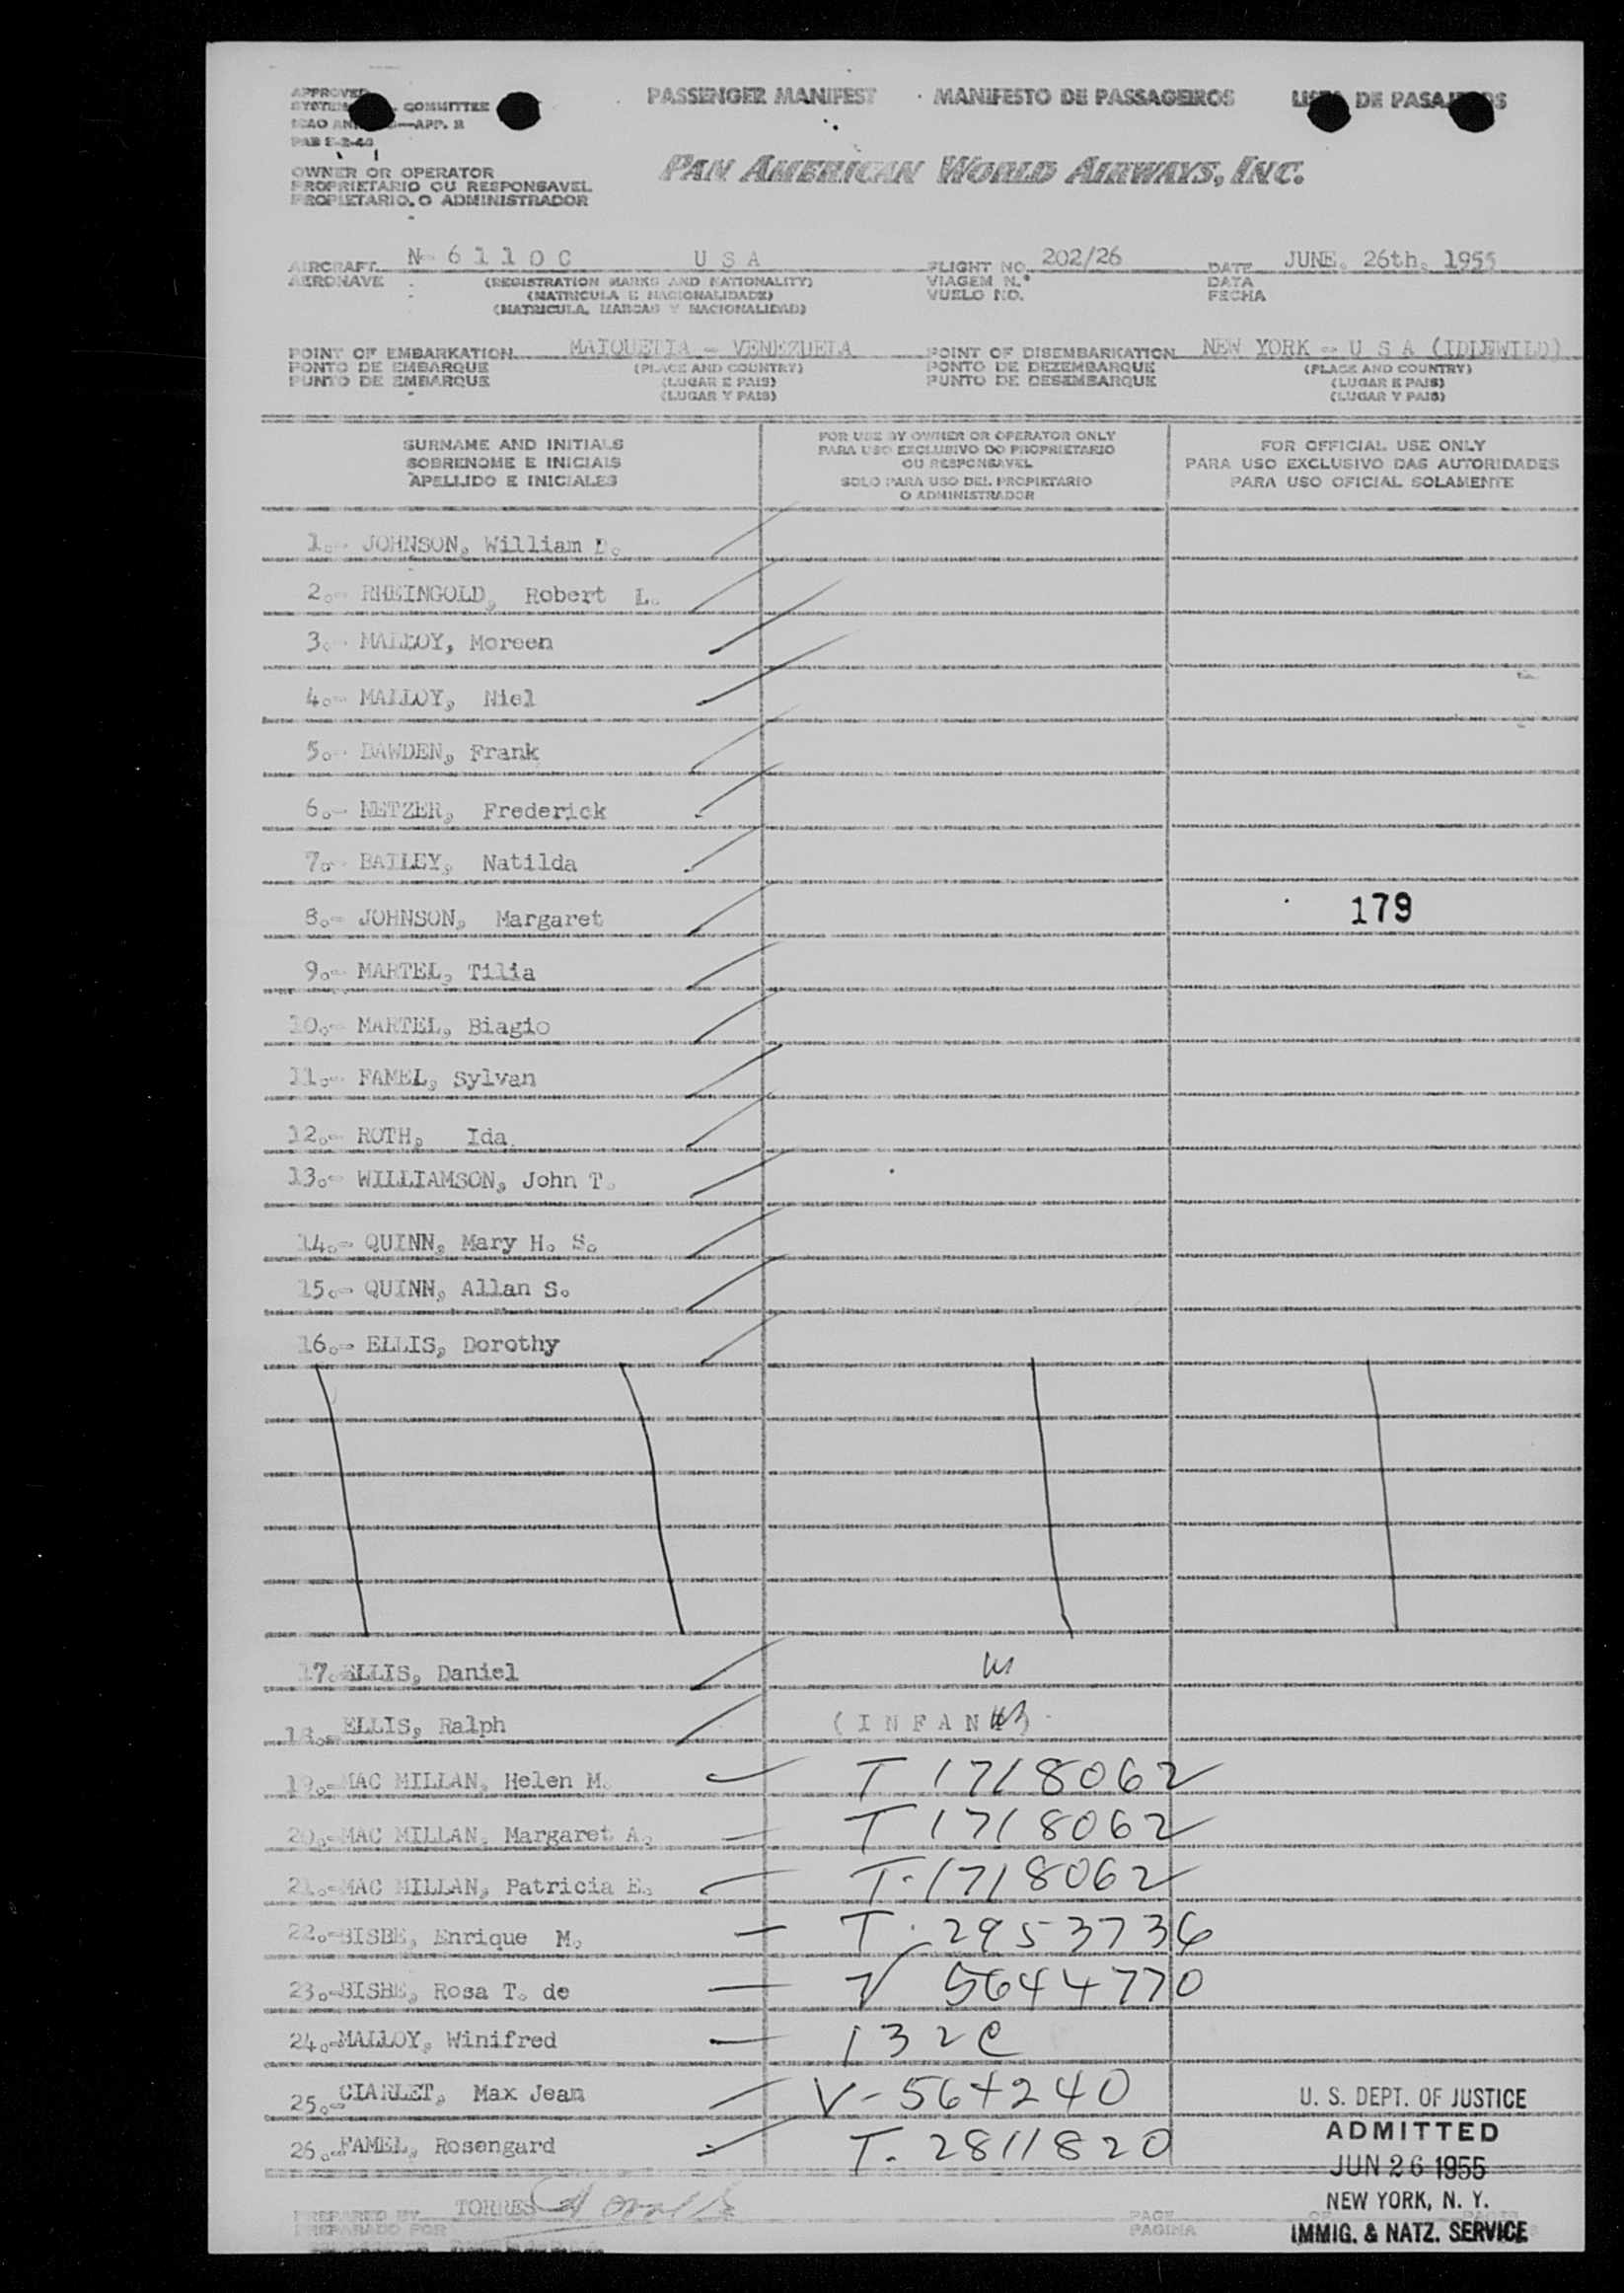 PASSENGER MANIFEST MANIFESTO DE PASSAGEIROS LISTA DE PASAJEROS
APPROVED
COMMITTEE
APP. B
OWNER OR OPERATOR
PROPRIETARIO OU RESPONSAVEL
PROPIETARIO O ADMINISTRADOR
PAN AMERICAN WORLD AIRWAYS, INC.
AIRCRAFT N- 6 1 1 0 C U S A FLIGHT NO. 202/26 DATE JUNE, 26th, 1955
AERONAVE (REGISTRATION MARKS AND NATIONALITY) VIAGEM N.° DATA
(MATRICULA E NACIONALIDADE) VUELO NO. FECHA
(MATRICULA, MARCAS Y NACIONALIDAD)
POINT OF EMBARKATION MAIQUETIA - VENEZUELA POINT OF DISEMBARKATION NEW YORK - U S A (IDLEWILD)
PONTO DE EMBARQUE (PLACE AND COUNTRY) PONTO DE DEZEMBARQUE (PLACE AND COUNTRY)
PUNTO DE EMBARQUE (LUGAR E PAIS) PUNTO DE DESEMBARQUE (LUGAR E PAIS)
(LUGAR Y PAIS) (LUGAR Y PAIS)
SURNAME AND INITIALS
SOBRENOME E INICIAIS
APELLIDO E INICIALES
FOR USE BY OWNER OR OPERATOR ONLY
PARA USO EXCLUSIVO DO PROPRIETARIO
OU RESPONSAVEL
SOLO PARA USO DEL PROPIETARIO
O ADMINISTRADOR
FOR OFFICIAL USE ONLY
PARA USO EXCLUSIVO DAS AUTORIDADES
PARA USO OFICIAL SOLAMENTE
1.- JOHNSON, William D.
2.- RHEINGOLD, Robert L.
3.- MALLOY, Moreen
4.- MALLOY, Niel
5.- BAWDEN, Frank
6.- NETZER, Frederick
7.- BAILEY, Natilda
8.- JOHNSON, Margaret 179
9.- MARTEL, Tilia
10.- MARTEL, Biagio
11.- FAMEL, Sylvan
12.- ROTH, Ida
13.- WILLIAMSON, John T.
14.- QUINN, Mary H. S.
15.- QUINN, Allan S.
16.- ELLIS, Dorothy
17.- ELLIS, Daniel
18.- ELLIS, Ralph (INFANT)
19.- MAC MILLAN, Helen M. T 1718062
20.- MAC MILLAN, Margaret A. T 1718062
21.- MAC MILLAN, Patricia E. T-1718062
22.- BISBE, Enrique M. T-2953736
23.- BISBE, Rosa T. de V 5644770
24.- MALLOY, Winifred 132C
25.- CIARLET, Max Jean V-564240
26.- FAMEL, Rosengard T. 2811820
U. S. DEPT. OF JUSTICE
ADMITTED
JUN 26 1955
NEW YORK, N. Y.
IMMIG. & NATZ. SERVICE
PREPARED BY TORRES PAGE
PREPARADO POR PAGINA